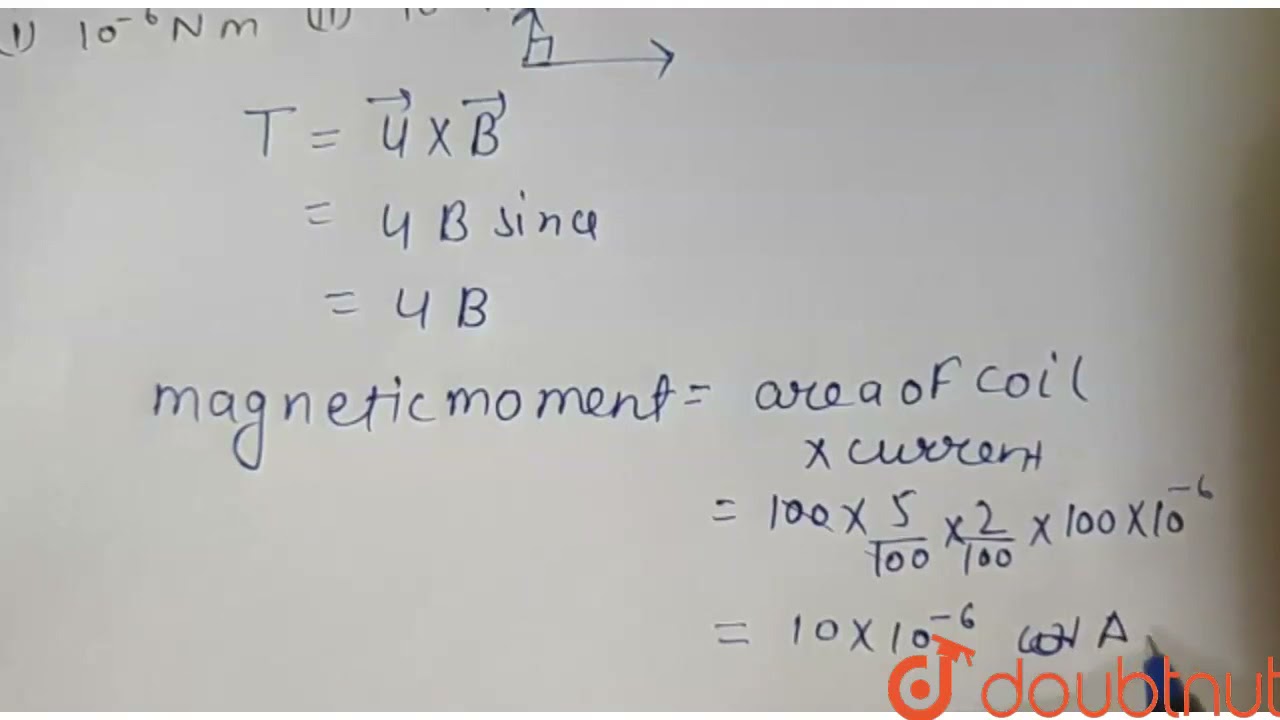 (1) 10⁻⁶ N m (11) 10
T = u⃗ X B⃗
= u B sin
= u B
magnetic moment = area of coil
x current
= 100 x 5/100 x 2/100 x 100 x 10⁻⁶
= 10 x 10⁻⁶ A
doubtnut